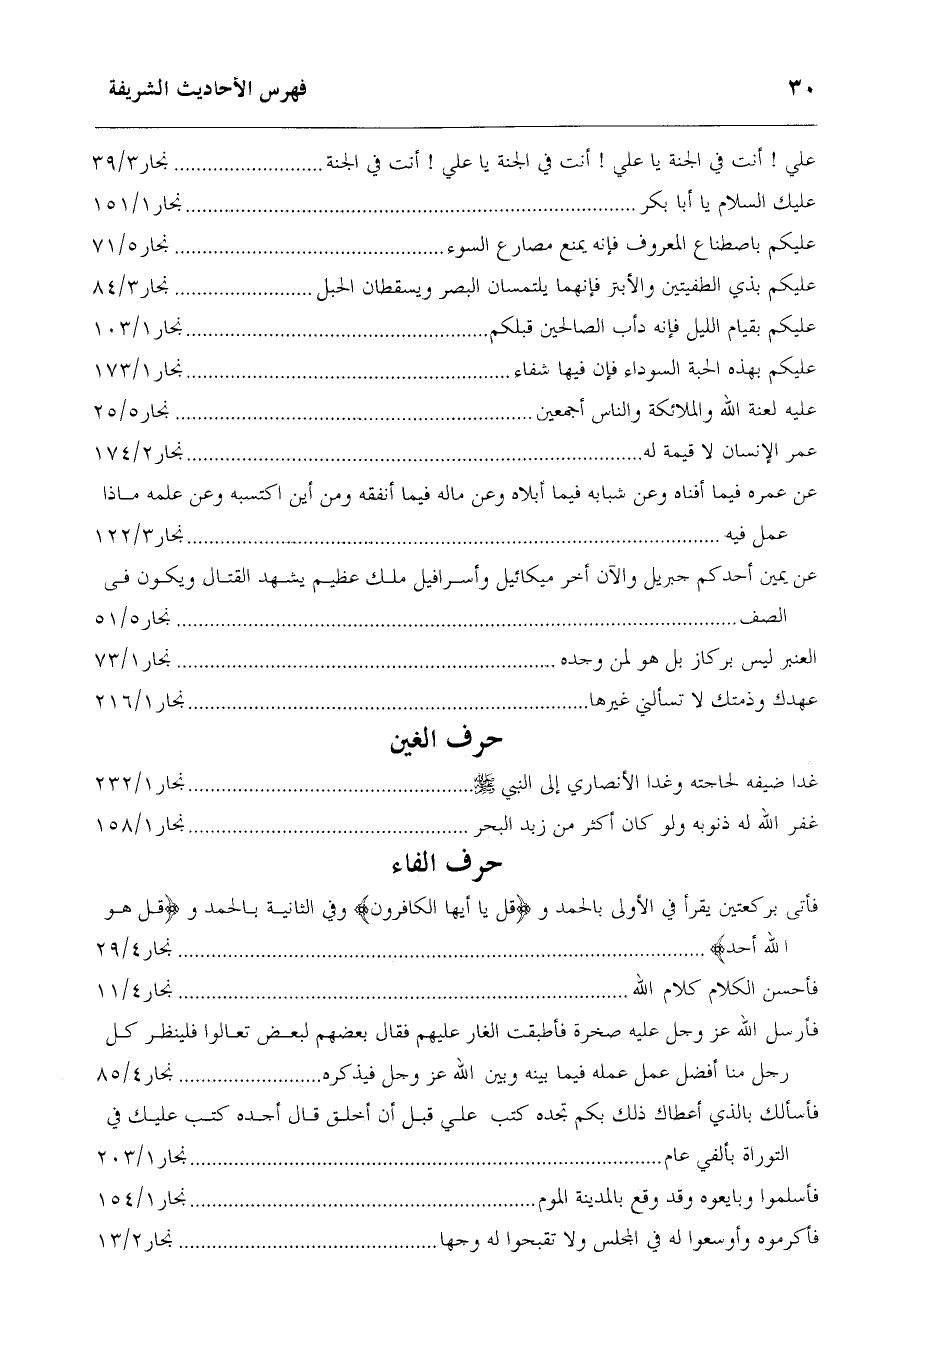 ٣٠ فهرس الأحاديث الشريفة
علي ! أنت في الجنة يا علي ! أنت في الجنة يا علي ! أنت في الجنة ........................... نجار٣٩/٣
عليك السلام يا أبا بكر ................................................................................. نجار١٥١/١
عليكم باصطناع المعروف فإنه يمنع مصارع السوء ................................................ نجار٧١/٥
عليكم بذي الطفيتين والأبتر فإنهما يلتمسان البصر ويسقطان الحبل ......................... نجار٨٤/٣
عليكم بقيام الليل فإنه دأب الصالحين قبلكم ...................................................... نجار١٠٣/١
عليكم بهذه الحبة السوداء فإن فيها شفاء .......................................................... نجار١٧٣/١
عليه لعنة الله والملائكة والناس أجمعين ................................................................ نجار٢٥/٥
عمر الإنسان لا قيمة له .................................................................................. نجار١٧٤/٢
عن عمره فيما أفناه وعن شبابه فيما أبلاه وعن ماله فيما أنفقه ومن أين اكتسبه وعن علمه مـاذا
عمل فيه ................................................................................................ نجار١٢٢/٣
عن يمين أحدكم جبريل والآن أخر ميكائيل وأسـرافيل ملـك عظيـم يشـهد القتـال ويكـون فـى
الصف ..................................................................................................... نجار٥١/٥
العنبر ليس بركاز بل هو لمن وجده .................................................................... نجار٧٣/١
عهدك وذمتك لا تسألني غيرها ........................................................................ نجار٢١٦/١
حرف الغين
غدا ضيفه لحاجته وغدا الأنصاري إلى النبي ﷺ .................................................... نجار٢٣٢/١
غفر الله له ذنوبه ولو كان أكثر من زبد البحر .................................................... نجار١٥٨/١
حرف الفاء
فأتى بركعتين يقرأ في الأولى بالحمد و ﴿قل يا أيها الكافرون﴾ وفي الثانيـة بـالحمد و ﴿قـل هـو
الله أحد﴾ ................................................................................................ نجار٢٩/٤
فأحسن الكلام كلام الله ................................................................................. نجار١١/٤
فأرسل الله عز وجل عليه صخرة فأطبقت الغار عليهم فقال بعضهم لبعـض تعـالوا فلينظـر كـل
رجل منا أفضل عمل عمله فيما بينه وبين الله عز وجل فيذكره .......................... نجار٨٥/٤
فأسألك بالذي أعطاك ذلك بكم تجده كتب علـي قبـل أن أخلـق قـال أجـده كتـب عليـك في
التوراة بألفي عام ...................................................................................... نجار٢٠٣/١
فأسلموا وبايعوه وقد وقع بالمدينة الموم .............................................................. نجار١٥٤/١
فأكرموه وأوسعوا له في المجلس ولا تقبحوا له وجها ............................................... نجار١٣/٢